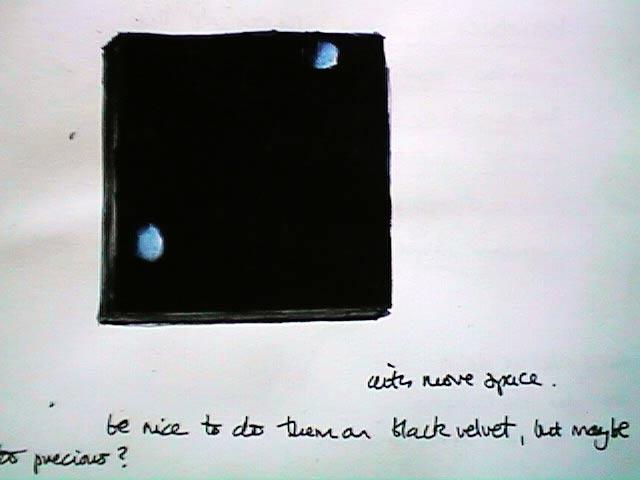 with more space.
be nice to do them on black velvet, but maybe
too precious?